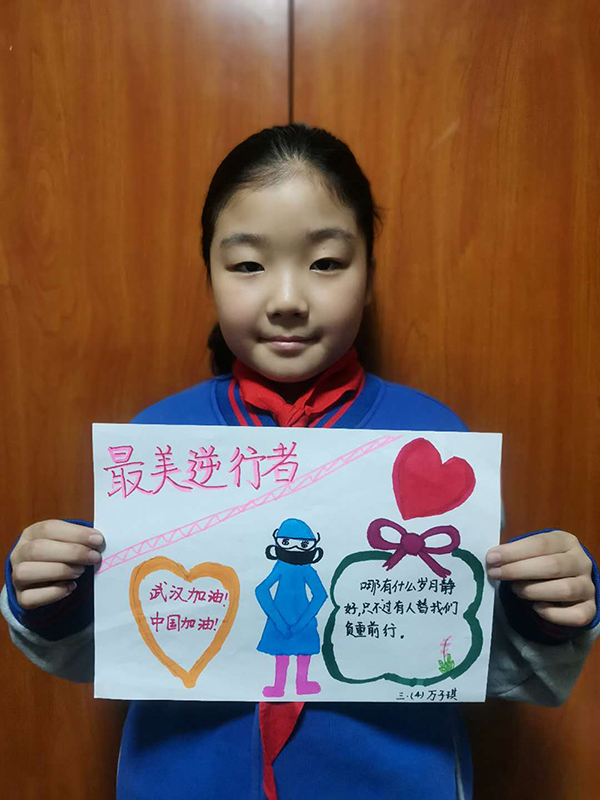 最美逆行者
武汉加油!
中国加油!
哪有什么岁月静
好,只不过有人替我们
负重前行。
三.(4) 万子琪